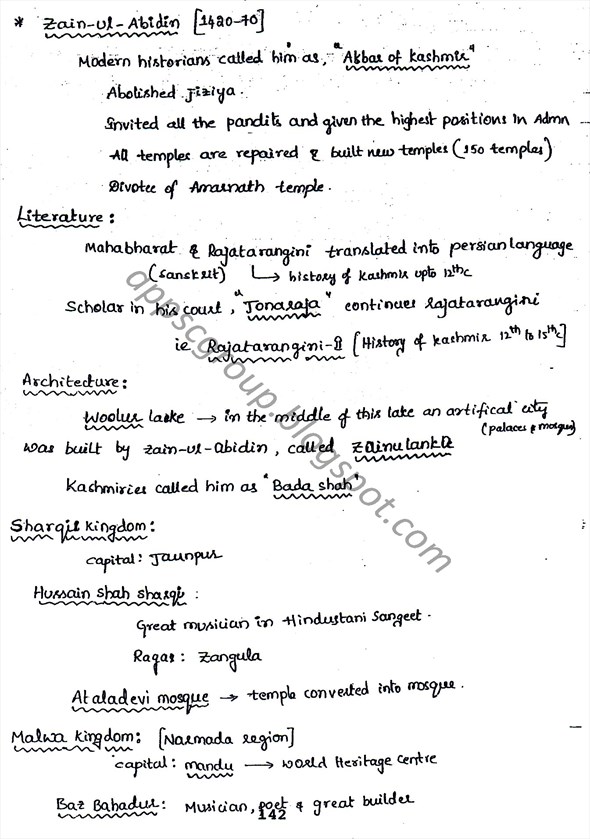 * Zain-ul-Abidin [1420-70]
Modern historians called him as, "Akbar of Kashmir"
Abolished Jiziya.
Invited all the pandits and given the highest positions in Admn
All temples are repaired & built new temples (150 temples)
Divotee of Amarnath temple.
Literature:
Mahabharat & Rajatarangini translated into persian language
(sanskrit) ↳ history of Kashmir upto 12th c
Scholar in his court, "Jonaraja" continues rajatarangini
ie Rajatarangini-II [History of kashmir 12th to 15th c]
Architecture:
Woolur lake → in the middle of this lake an artifical city
(palaces & mosques)
was built by zain-ul-abidin, called Zainulanka
Kashmiries called him as "Bada shah"
Sharqii kingdom:
capital: Jaunpur
Hussain shah sharqi:
Great musician in Hindustani Sangeet.
Ragas: Zangula
Ataladevi mosque → temple converted into mosque.
Malwa kingdom: [Narmada region]
capital: mandu → World Heritage Centre
Baz Bahadur: Musician, poet & great builder
142
appscgroup.blogspot.com